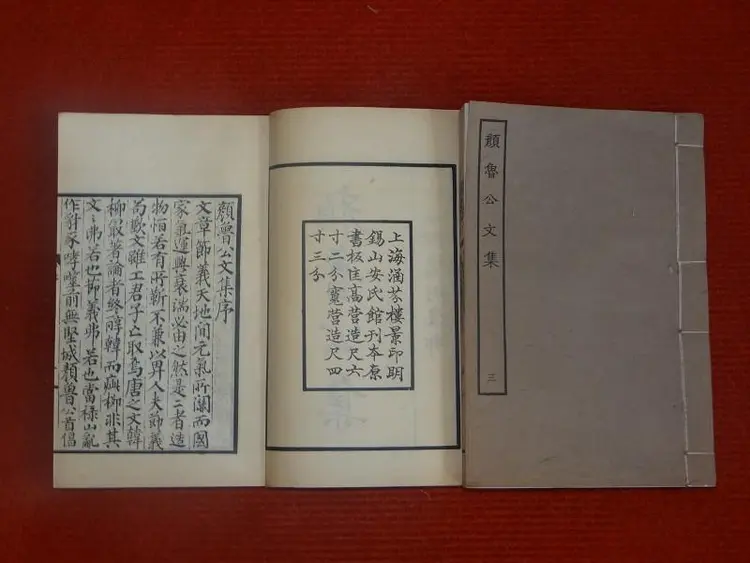 顏魯公文集
三
上海涵芬樓景印明
錫山安氏館刊本原
書板匡高營造尺六
寸二分寬營造尺四
寸三分
顏魯公文集序
文章節義天地間元氣所關而國
家氣運興衰湍必由之然是二者造
物恒若有所靳不兼以畀人夫節義
苟歉文雖工君子亡取焉唐之文韓
柳最著論者終辭韓而病柳非其
文之弗若也節義弗若也當祿山亂
作豺豕哮噬前無堅城顏魯公首倡